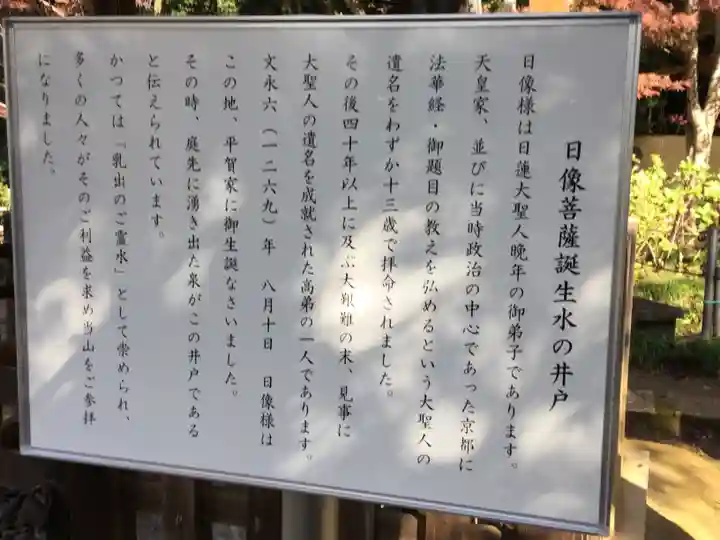 日像菩薩誕生水の井戸
日像様は日蓮大聖人晩年の御弟子であります。
天皇家、並びに当時政治の中心であった京都に
法華経・御題目の教えを弘めるという大聖人の
遺名をわずか十三歳で拝命されました。
その後四十年以上に及ぶ大艱難の末、見事に
大聖人の遺名を成就された高弟の一人であります。
文永六(一二六九)年 八月十日 日像様は
この地、平賀家に御生誕なさいました。
その時、庭先に湧き出た泉がこの井戸である
と伝えられています。
かつては「乳出のご霊水」として崇められ、
多くの人々がそのご利益を求め当山をご参拝
になりました。